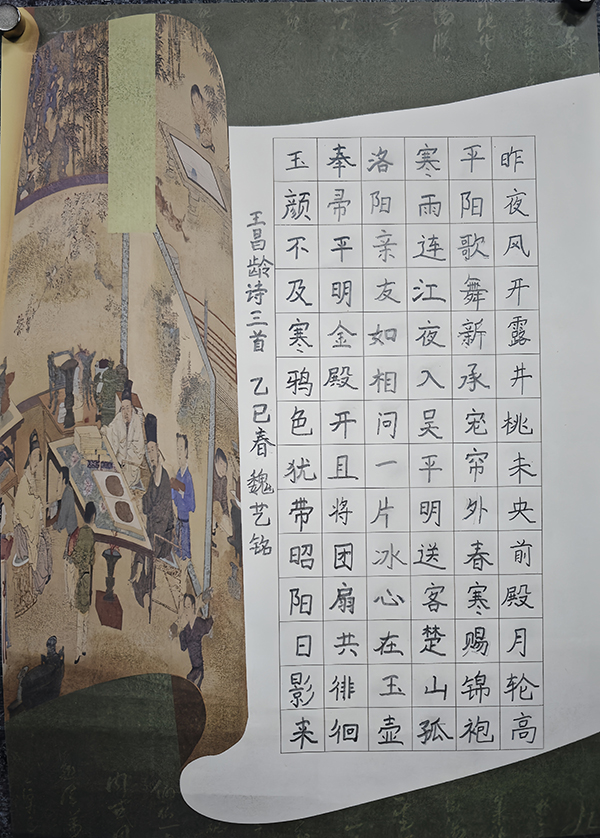 昨夜风开露井桃未央前殿月轮高
平阳歌舞新承宠帘外春寒赐锦袍
寒雨连江夜入吴平明送客楚山孤
洛阳亲友如相问一片冰心在玉壶
奉帚平明金殿开且将团扇共徘徊
玉颜不及寒鸦色犹带昭阳日影来
王昌龄诗三首 乙巳春 魏艺铭